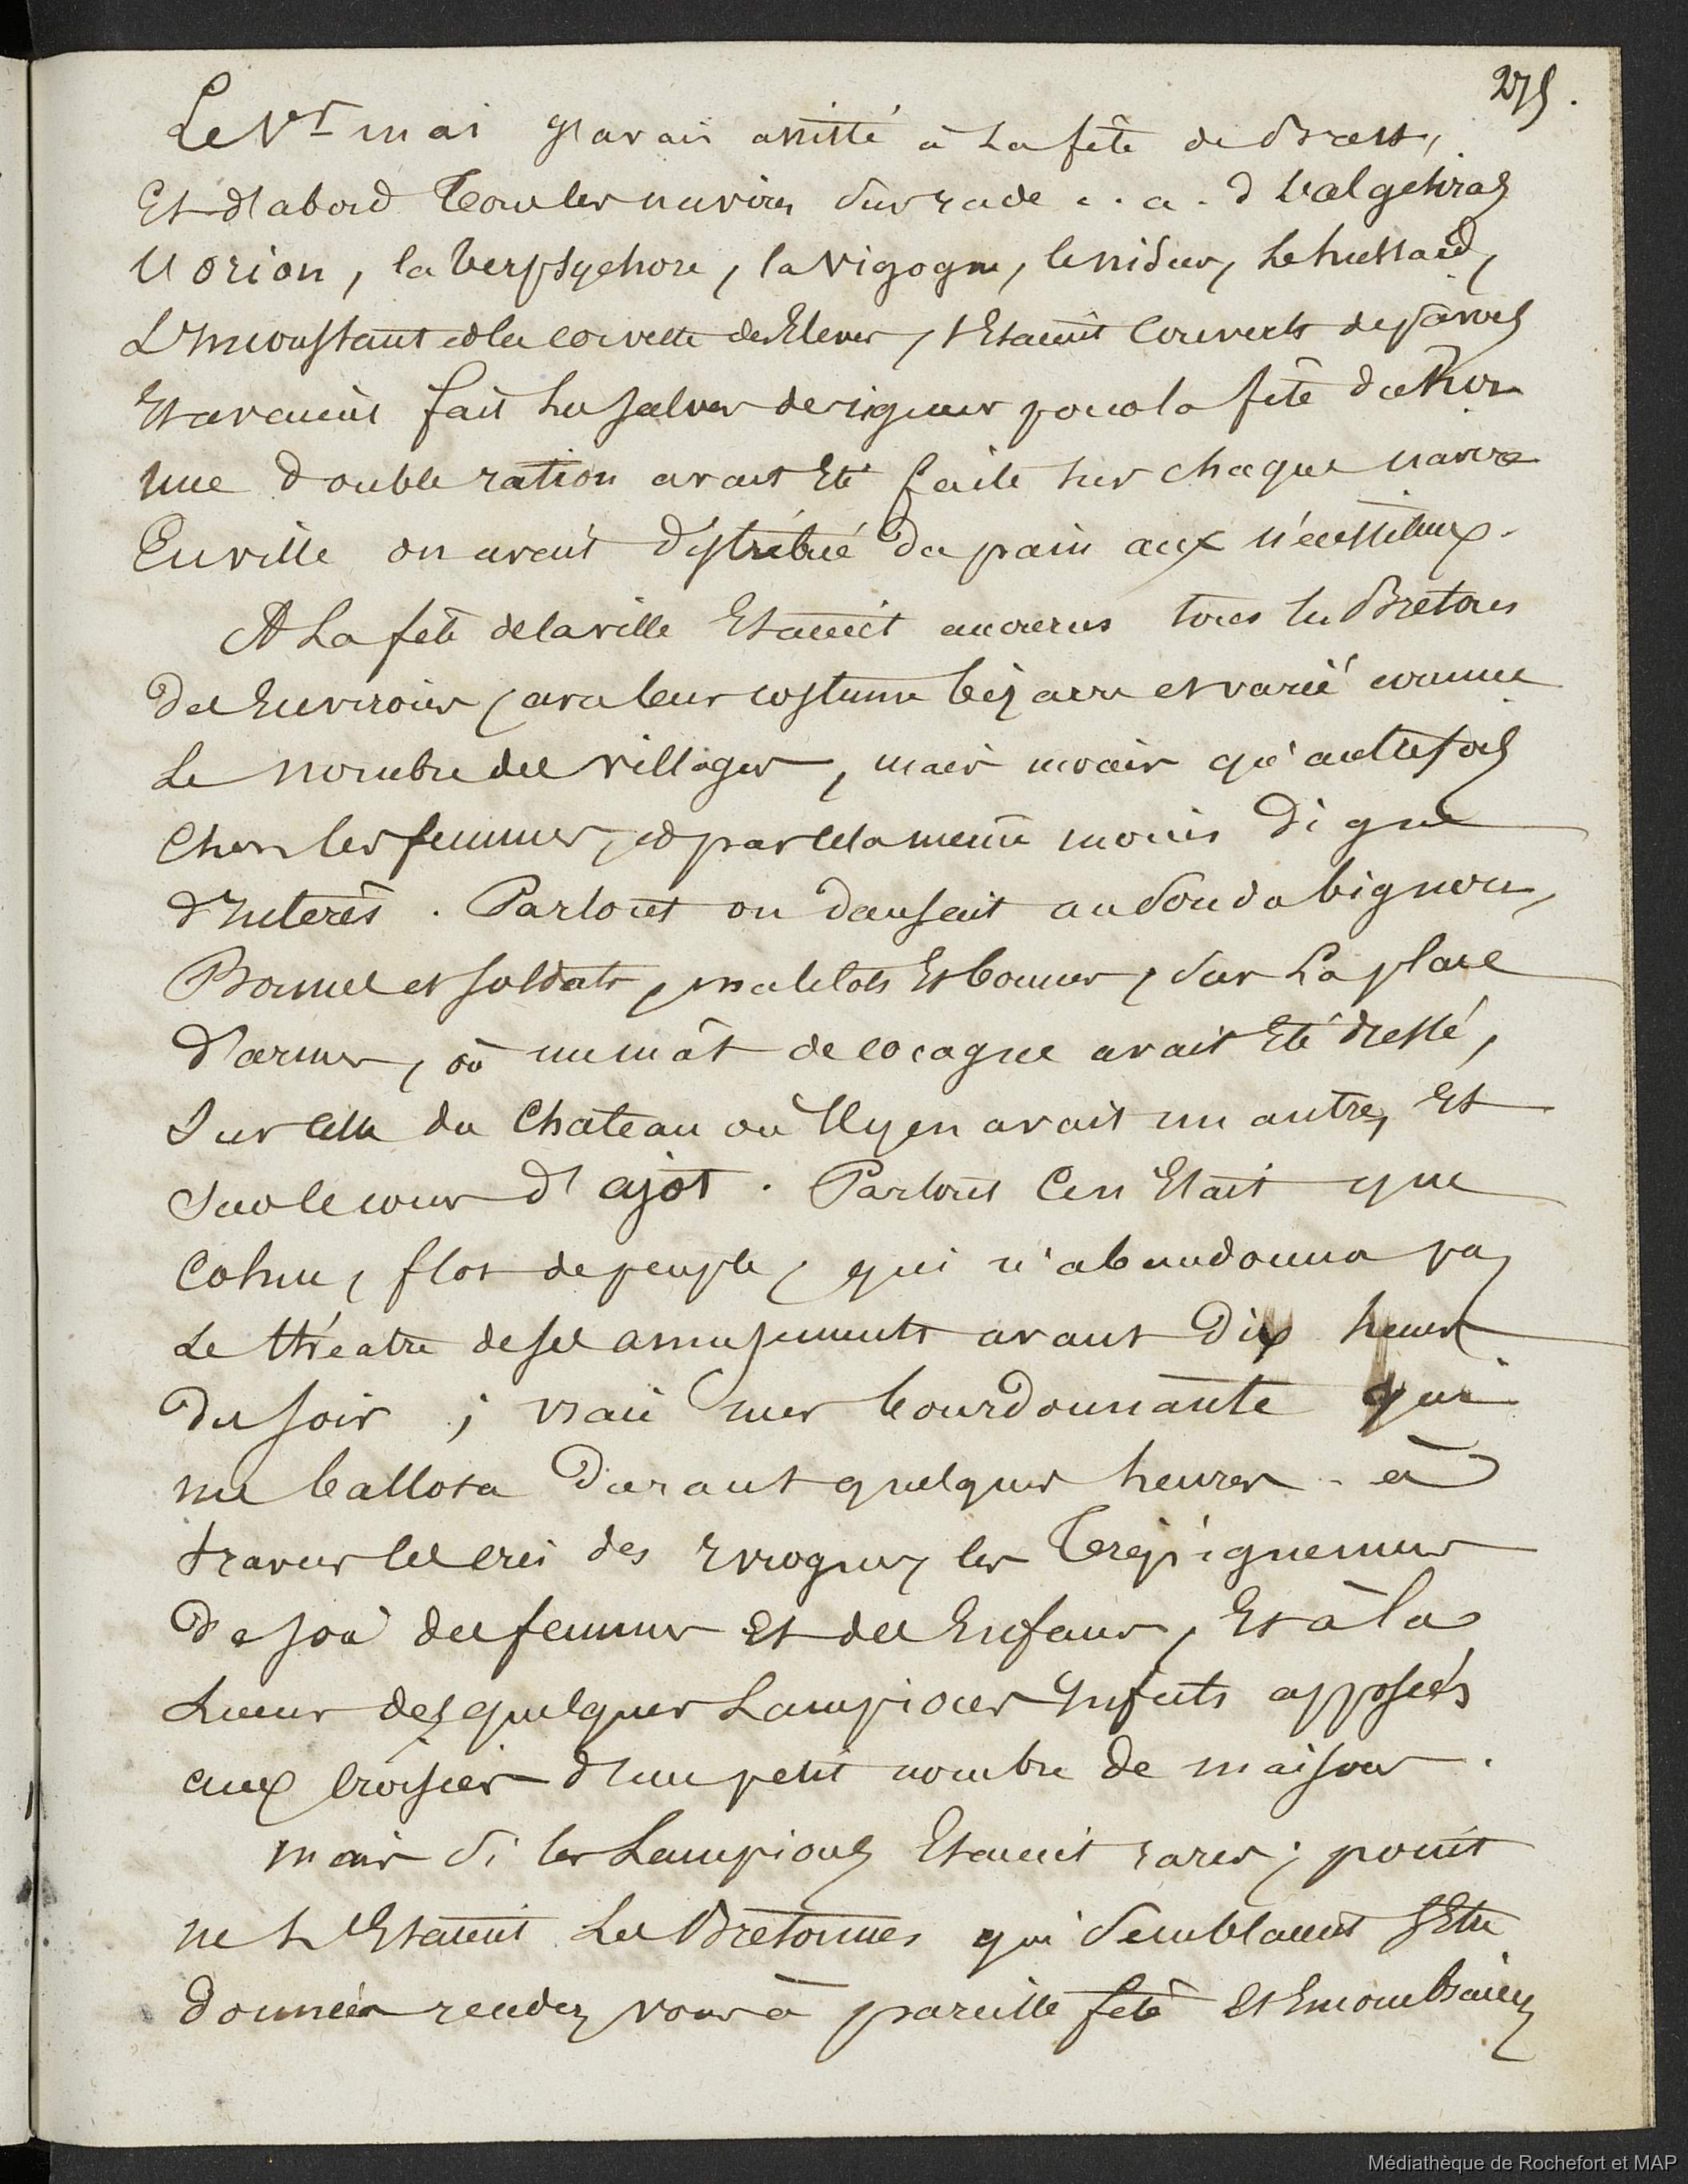 275.
Le 1er mai j'avais assisté à la fête de Brest,
Et d'abord Tous les navires sur rade c. a. d l'algehiras
l'orion, la terpsychore, la vigogne, le nisus, le hussard,
L'Inconstant et la corvette des Eleves, s'Etaient couverts de pavois
Et avaient fait les salves de rigueur pour la fête du Roi
une double ration avait Eté faite sur chaque navire
En ville on avait distribué du pain aux nécessiteux.
A La fête de la ville Etaient accourus tous les Bretons
des Environs, avec leur costume bizarre et varié comme
Le nombre des villages, mais moins qu'autrefois
Chez les femmes, et par cela même moins digne
d'Interês. Partout on dansait au son du bignou,
Bonnes et soldats, matelots Et bonnes, sur La place
d'armes, où un mât de cocagne avait Eté dressé,
Sur celle du Chateau où Il y en avait un autre, Et
Sur le cours d'ajot. Partout Ce n'Etait que
Cohue, flot de peuple, qui n'abandonna pas
Le théatre de ses amusements avant Dix heures
Du soir ; vraie mer bourdonnante qui
me ballota Durant quelques heures à
travers les cris des Ivrognes, les Trépignemens
De joie des femmes Et des Enfans, Et à la
Lueur des quelques Lampions Infects apposés
aux croisées d'un petit nombre de maisons.
mais si les Lampions Etaient rares ; point
ne L'Etaient Les Bretonnes qui semblaient s'Etre
données rendez vous à pareille fête Et Encombraient
Médiathèque de Rochefort et MAP